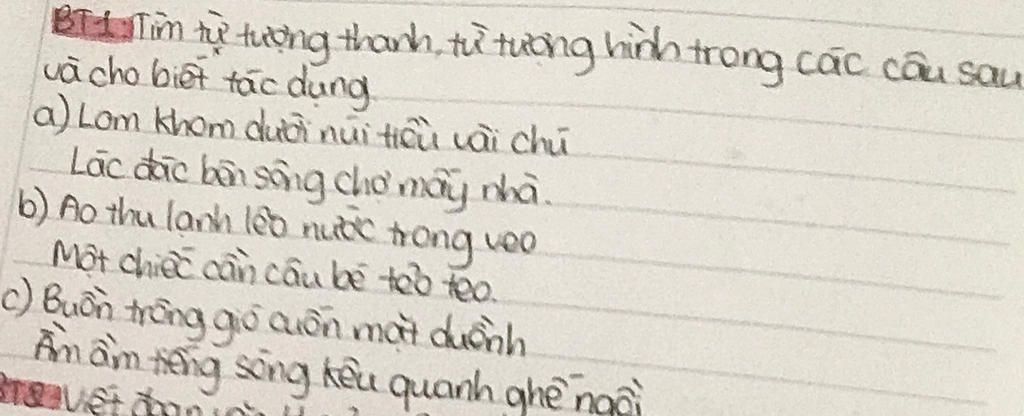 BT1: Tìm từ tượng thanh, từ tượng hình trong các câu sau
và cho biết tác dụng
a) Lom khom dưới núi tiều vài chú
Lác đác bên sông chợ mấy nhà.
b) Ao thu lạnh lẽo nước trong veo
Một chiếc cần câu bé tẻo teo.
c) Buồn trông gió cuốn mặt duềnh
Ầm ầm tiếng sóng kêu quanh ghế ngồi
BT2: Viết đoạn